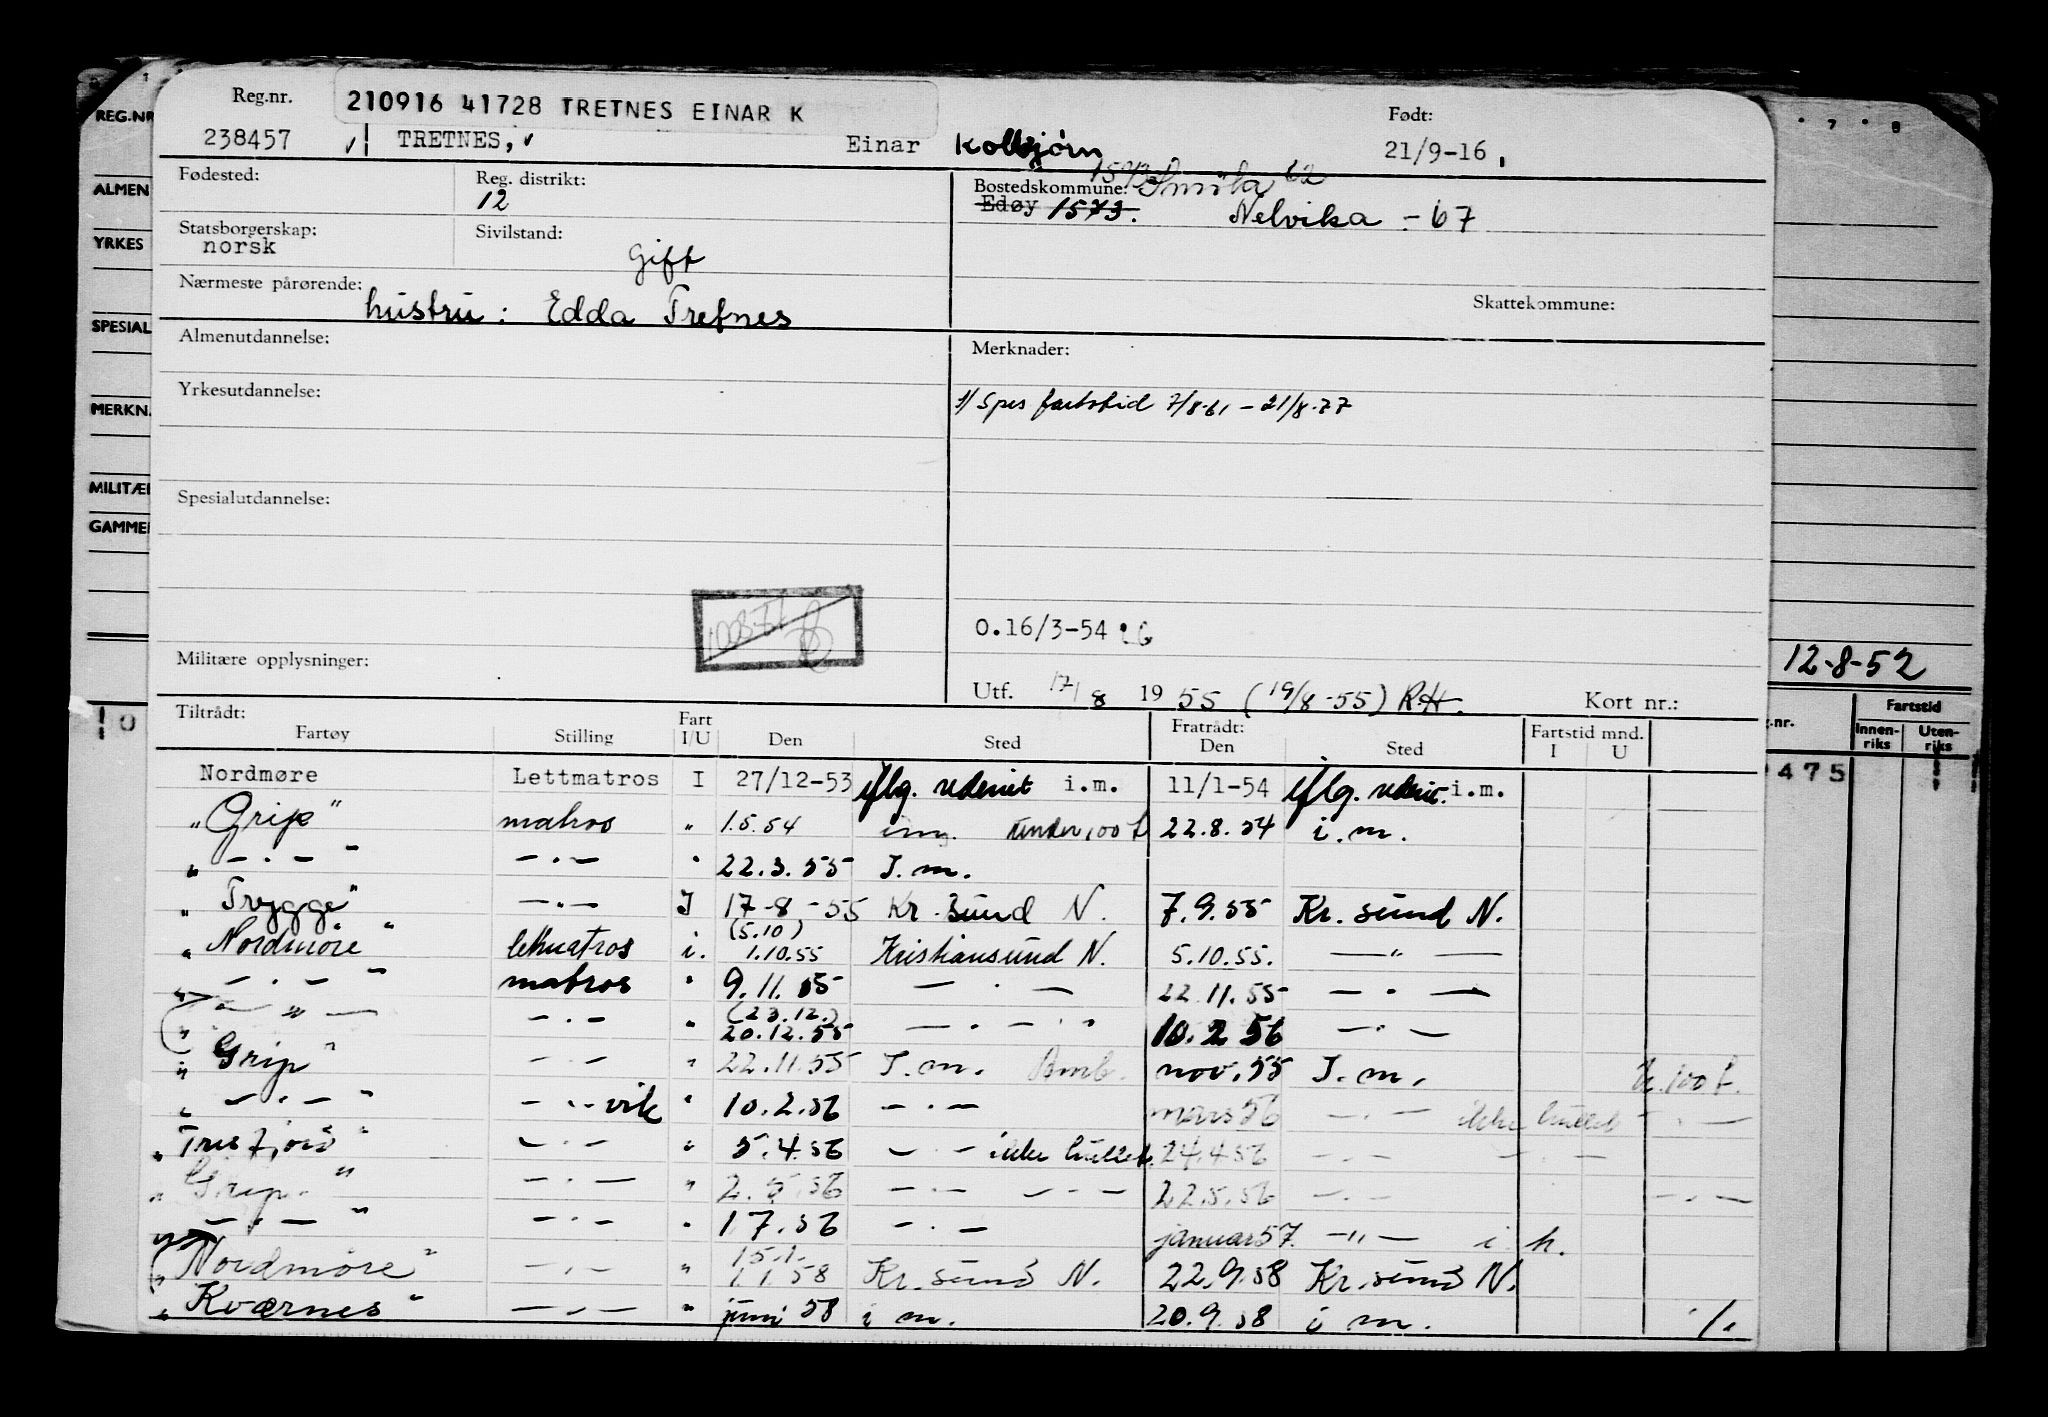 Reg.nr. 210916 41728 TRETNES EINAR K Født:
238457 TRETNES, Einar Kolbjørn 21/9-16
Fødested: Reg. distrikt: Bostedskommune: 1573 Smöla 62
12 Edøy 1573. Nelvika - 67
Statsborgerskap: Sivilstand:
norsk Gift
Nærmeste pårørende: Skattekommune:
hustru: Edda Tretnes
Almenutdannelse: Merknader:
Yrkesutdannelse: 1/ Spes fartstid 7/8-61 - 21/8-77
Spesialutdannelse:
O.16/3-54
Militære opplysninger:
Utf. 17/8 1955 (19/8-55) R.H. Kort nr.:
Tiltrådt: Fart Fratrådt: Fartstid mnd.
Fartøy Stilling I/U Den Sted Den Sted I U
Nordmøre Lettmatros I 27/12-53 iflg. i.m. 11/1-54 iflg. i.m.
"Grip" matros " 1.5.54 under 100 t 22.8.54 i.m.
" - . - " - . - " 22.3.55 I.m.
"Trygge" - " - I 17-8-55 Kr.sund N. 7.9.55 Kr.sund N.
"Nordmöre" lettmatros i. (5.10) 1.10.55 Kristiansund N. 5.10.55. - " -
" - . - " matros " 9.11.55 - . - 22.11.55 - . -
" - " - - . - " (23.12.) 20.12.55 - . - 10.2.56 - . -
"Grip" - . - " 22.11.55 I.m. nov. 55 I.m. u. 100 t.
" - . - " - . - vik " 10.2.56 - . - mars 56 - . - ikke - . -
"Tresfjord" - . - " 5.4.56 - . - ikke 24.4.56 - . - - . -
"Grip" - . - " 2.5.56 - . - - . - 22.5.56 - . - - . -
" - . - " - . - " 1.7.56 - . - januar 57. - " - i h.
"Nordmöre" - . - " 15.1. 1.1.58 Kr.sund N. 22.9.58 Kr.sund N.
"Kværnes" - . - " juni 58 i m. 20.9.58 i m. ./.
REG.NR
ALMEN
YRKES
SPESIAL
MERKN.
MILITÆ
GAMME
0
7 8
12-8-52
Fartstid
g.nr. Innenriks Utenriks
475